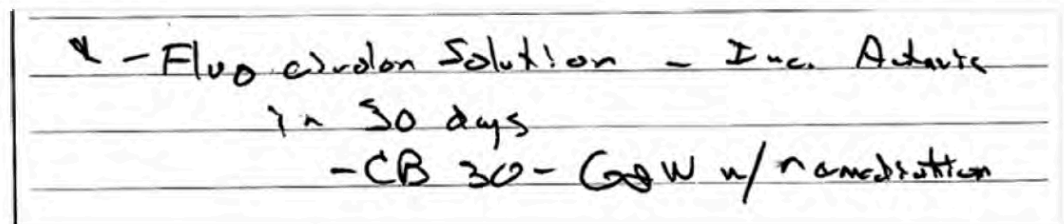 * - Fluocinolon Solution - Inc. Actavis
in 30 days
- CB 30 - G&W w/ remediation